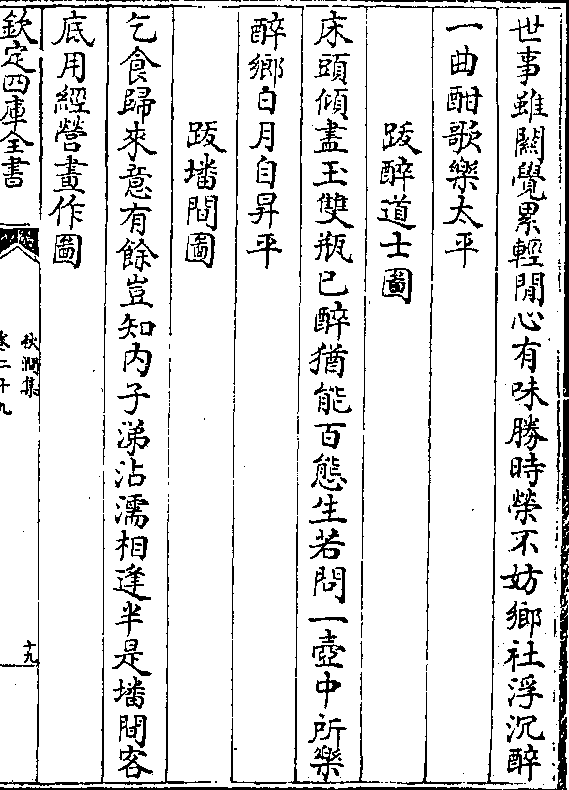 世事雖闗覺累輕閒心有味勝時榮不妨鄉社浮沉醉
一曲酣歌樂太平
跋醉道士圖
床頭傾盡玉雙瓶已醉猶能百態生若問一壺中所樂
醉鄉白月自昇平
跋墦間圖
乞食歸來意有餘豈知内子涕沾濡相逢半是墦間客
底用經營畫作圖
欽定四庫全書
秋澗集
卷二十九
十九